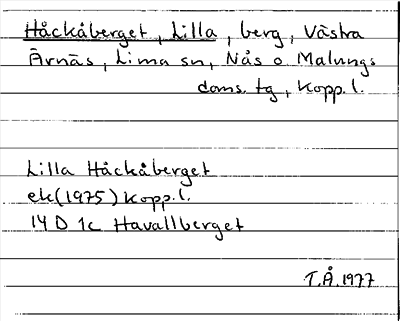 Håckåberget, Lilla, berg, Västra
Ärnäs, Lima sn, Nås o. Malungs
doms. tg, Kopp. l.
Lilla Håckåberget
ek(1975) Kopp. l.
14 D 1c Havallberget
T.Å. 1977